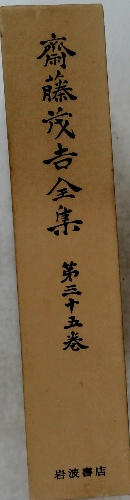 齋藤茂吉全集
第三十五巻
岩波書店